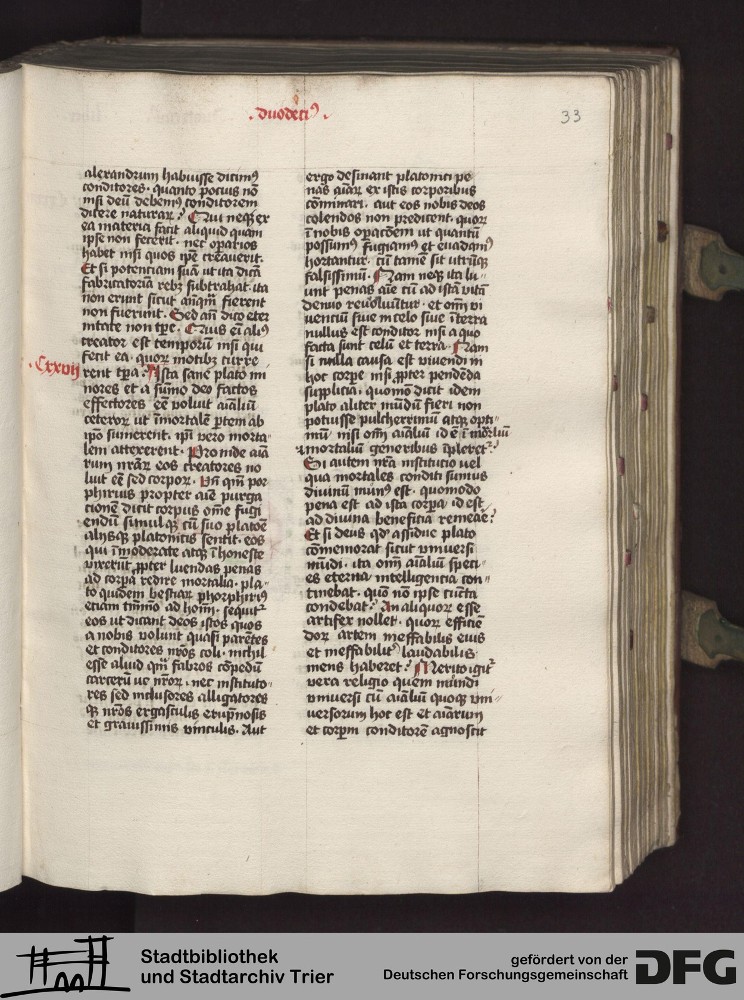 .duodeciꝰ.
33
alexandrum habuisse dicimꝰ
conditores · quanto pocius nō
nisi deū debemꝰ conditorem
dicere naturarꝝ? Qui neqꝫ ex
ea materia facit aliquid quam
ipse non fecerit · nec oparios
habet nisi quos ipē creauerit.
Et si potentiam suā ut ita dicā
fabricatoriā rebꝫ subtrahat · ita
non erunt sicut anq̄m fierent
non fuerunt. Sed an̄ dico eter
nitate non tpe. Quis eī aliꝰ
creator est temporū nisi qui
fecit ea · quoꝝ motibꝫ curre
rent tpa?
.Cxxvii
Ista sane plato mi
nores et a sūmo deo factos
effectores eē voluit aīaliū
ceteroꝝ ut īmortalē ꝑtem ab
ipō sumerent · ip̄i vero morta
lem attexerent. Proinde aīa
rum nrārꝝ eos creatores no
luit eē sed corpoꝝ. Vn̄ qm̄ por
phirius propter aīe purga
cionē dicit corpus om̄e fugi
endū simulqꝫ cū suo platōe
alijsqꝫ platonicis sentit · eos
qui īmoderate atqꝫ īhoneste
vixerūt ꝓpter luendas penas
ad corpa redire mortalia · pla
to quidem bestiarꝝ phorphiriꝰ
etiam tm̄mō ad hoīm · sequit
eos ut dicant deos istos quos
a nobis volunt quasi parētes
et conditores nrōs coli · nichil
esse aliud qm̄ fabros cōpedū
carcerū ve nr̄oꝝ · nec instituto
res sed inclusores alligatores
qꝫ nrōs ergastulis erūpnosis
et grauissimis vinculis. Aut
ergo desinant platonici pe
nas aīarꝝ ex istis corporibus
cōminari · aut eos nobis deos
colendos non predicent · quoꝝ
ī nobis opacōem ut quantū
possumꝰ fugiamꝰ et euadamꝰ
hortantur · cū tamē sit utrūqꝫ
falsissimū. Nam neqꝫ ita lu
unt penas aīe cū ad istā vitā
denuo reuoluūtur · et om̄i vi
uenciū siue in celo siue ī terra
nullus est conditor nisi a quo
facta sunt celū et terra. Nam
si nulla causa est viuendi in
hoc corpe nisi ꝓpter pendēda
supplicia · quomō dicit idem
plato aliter mūdū fieri non
potuisse pulcherrimū atqꝫ opti
mū nisi om̄ aīaliū id ē īmorliū
⁊mortaliū generibus īpleret?
Si autem nrā institutio uel
qua mortales conditi sumus
diuinū munꝰ est · quomodo
pena est ad ista corpa id est
ad diuina beneficia remeāe?
Et si deus qd' assidue plato
cōmemorat sicut vniuersi
mūdi · ita om̄ aīaliū speci
es eterna intelligencia con
tinebat · quō nō ipse cūcta
condebat? An aliquorꝝ esse
artifex nollet · quoꝝ efficiē
dorꝝ artem ineffabilis eius
et ineffabilitꝰ laudabilis
mens haberet? Merito igit
vera religio quem mūndi
vniuersi cū aīaliū quoqꝫ vni
uersorum hoc est et aīarum
et corpm conditorē agnoscit
Stadtbibliothek
und Stadtarchiv Trier
gefördert von der
Deutschen Forschungsgemeinschaft
DFG